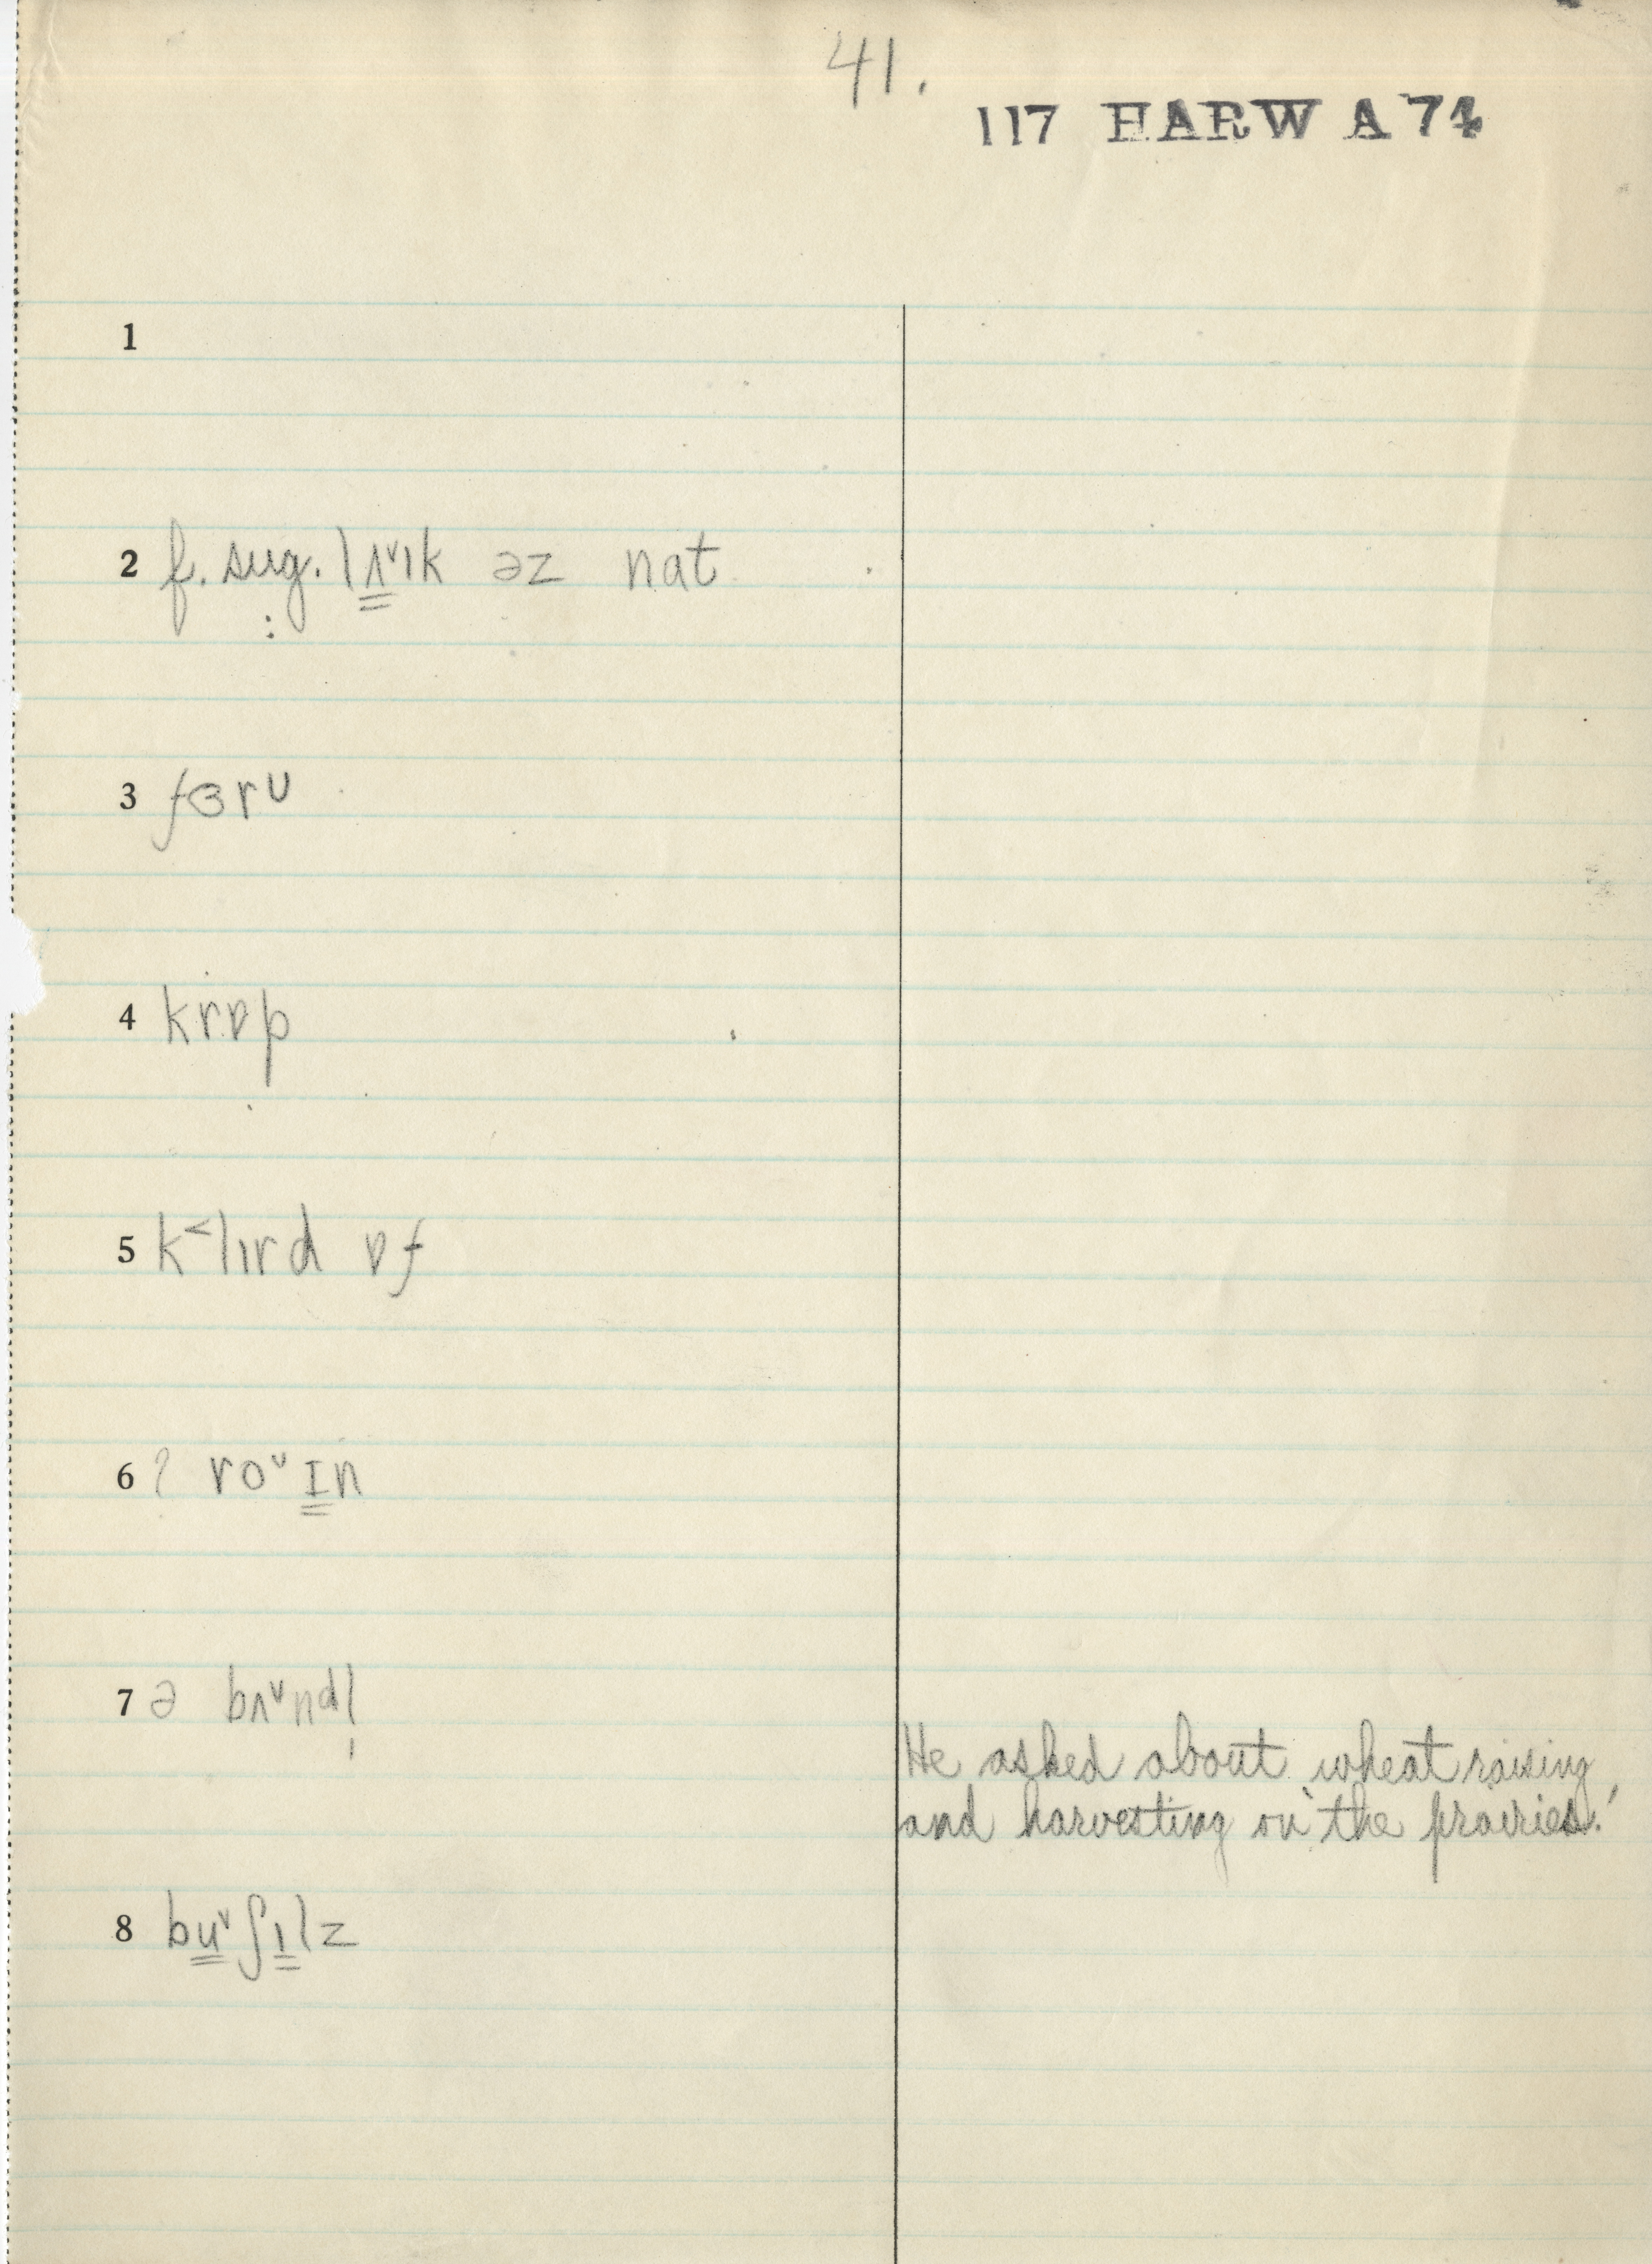 41.
117 HARW A 74
1
2 f. sug. lʌ̳ᵛık əz nat
3 fɜrᴜ
4 krɒp
5 k˂lırd ɒf
6 ? roᵛ I̳n
7 ə bʌᵛndl̩
He asked about wheat raising
and harvesting on the prairies.'
8 bu̳ᵛʃı̳lz